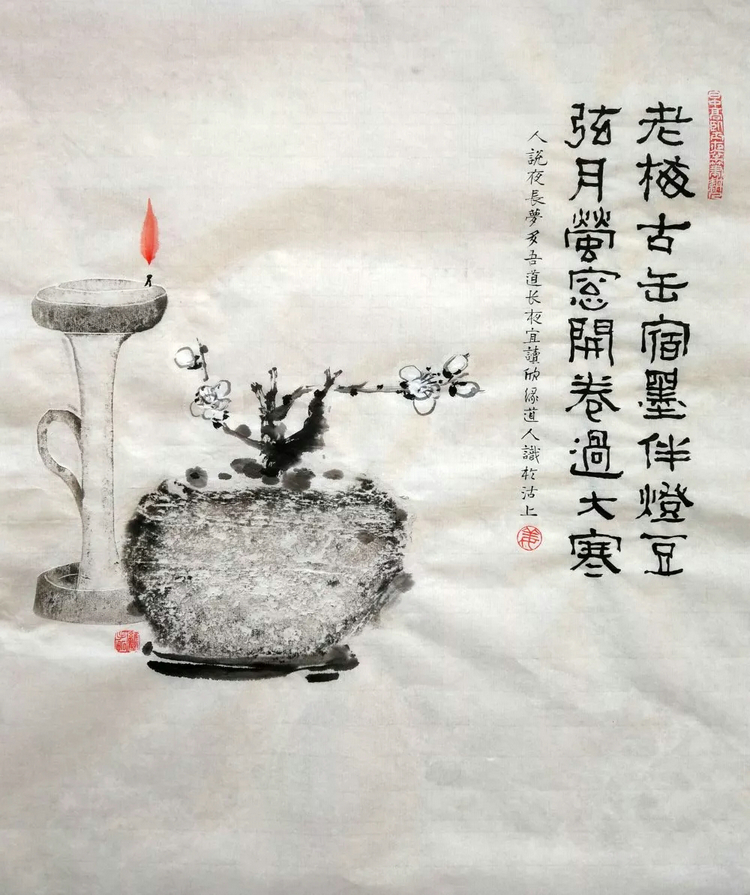 老梅古缶宿墨伴燈豆
弦月螢窓開卷過大寒
人説夜長夢多吾道长夜宜讀欣缘道人識於沽上